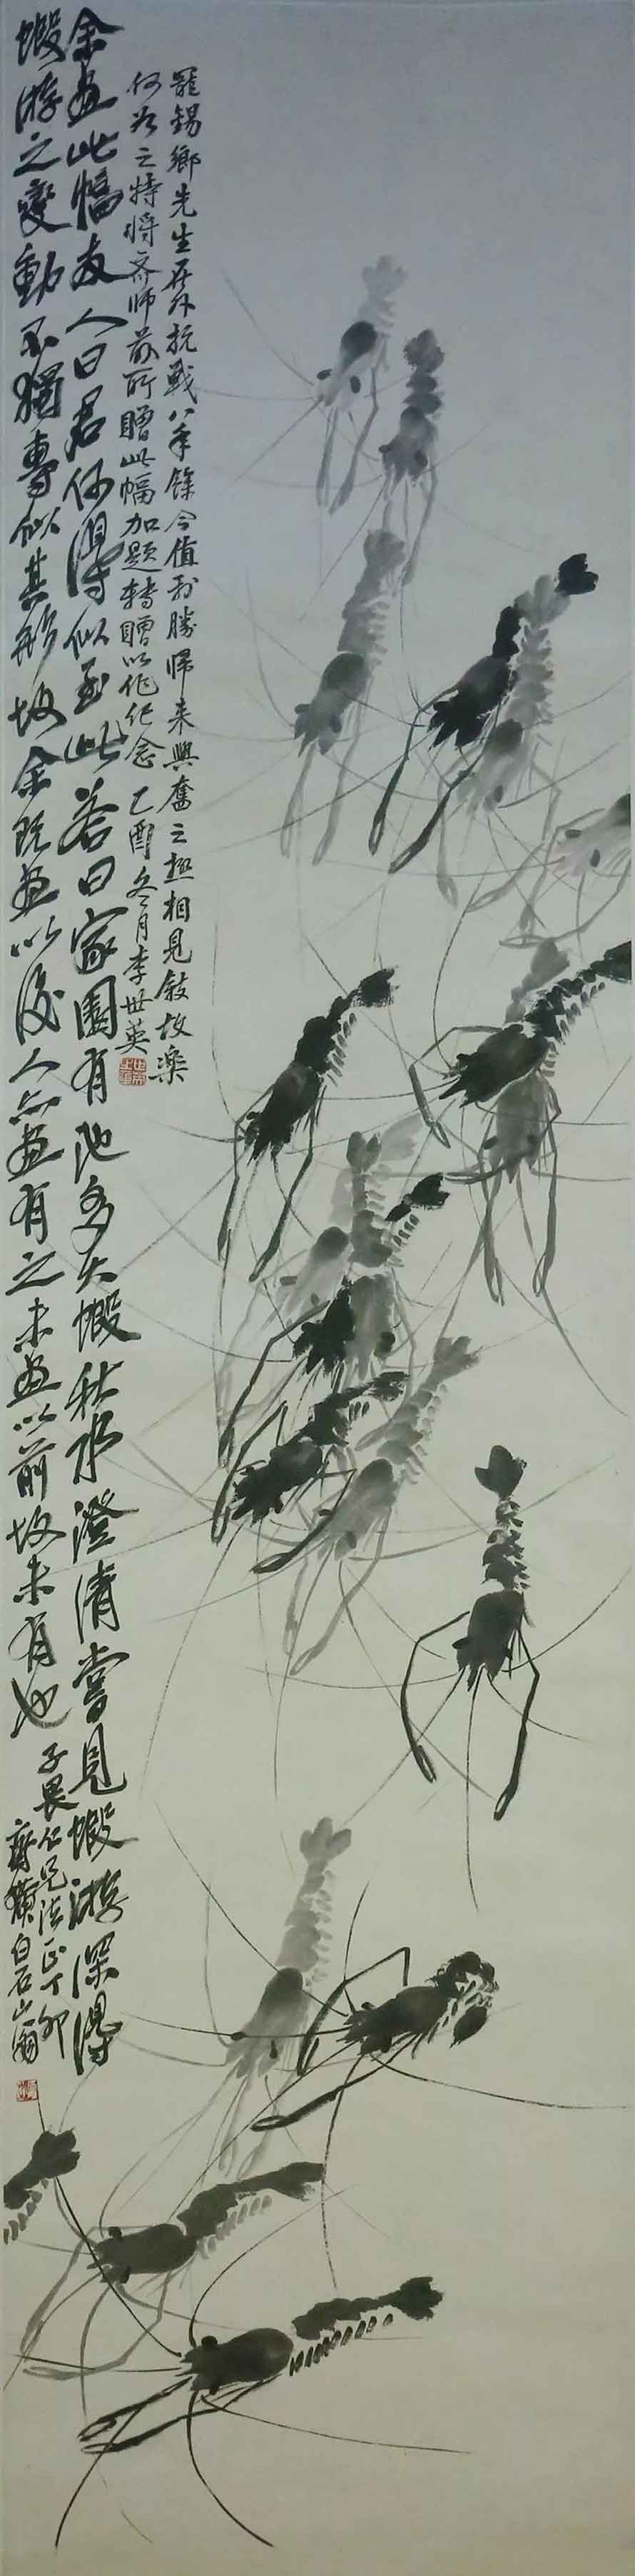 余画此幅友人曰君何得似至此答曰家園有池多大蝦秋水澄清嘗見蝦游深得
蝦游之變動不獨專似其形故余既畫以後人亦畫有之未畫以前故未有也
子畏仁兄法正丁卯
齊璜白石山翁
羆錫鄉先生在外抗戰八年餘今值到勝歸来興奮之極相見敍故樂
何如之特將齊師前所贈此幅加題轉贈以作纪念 乙酉冬月李世英